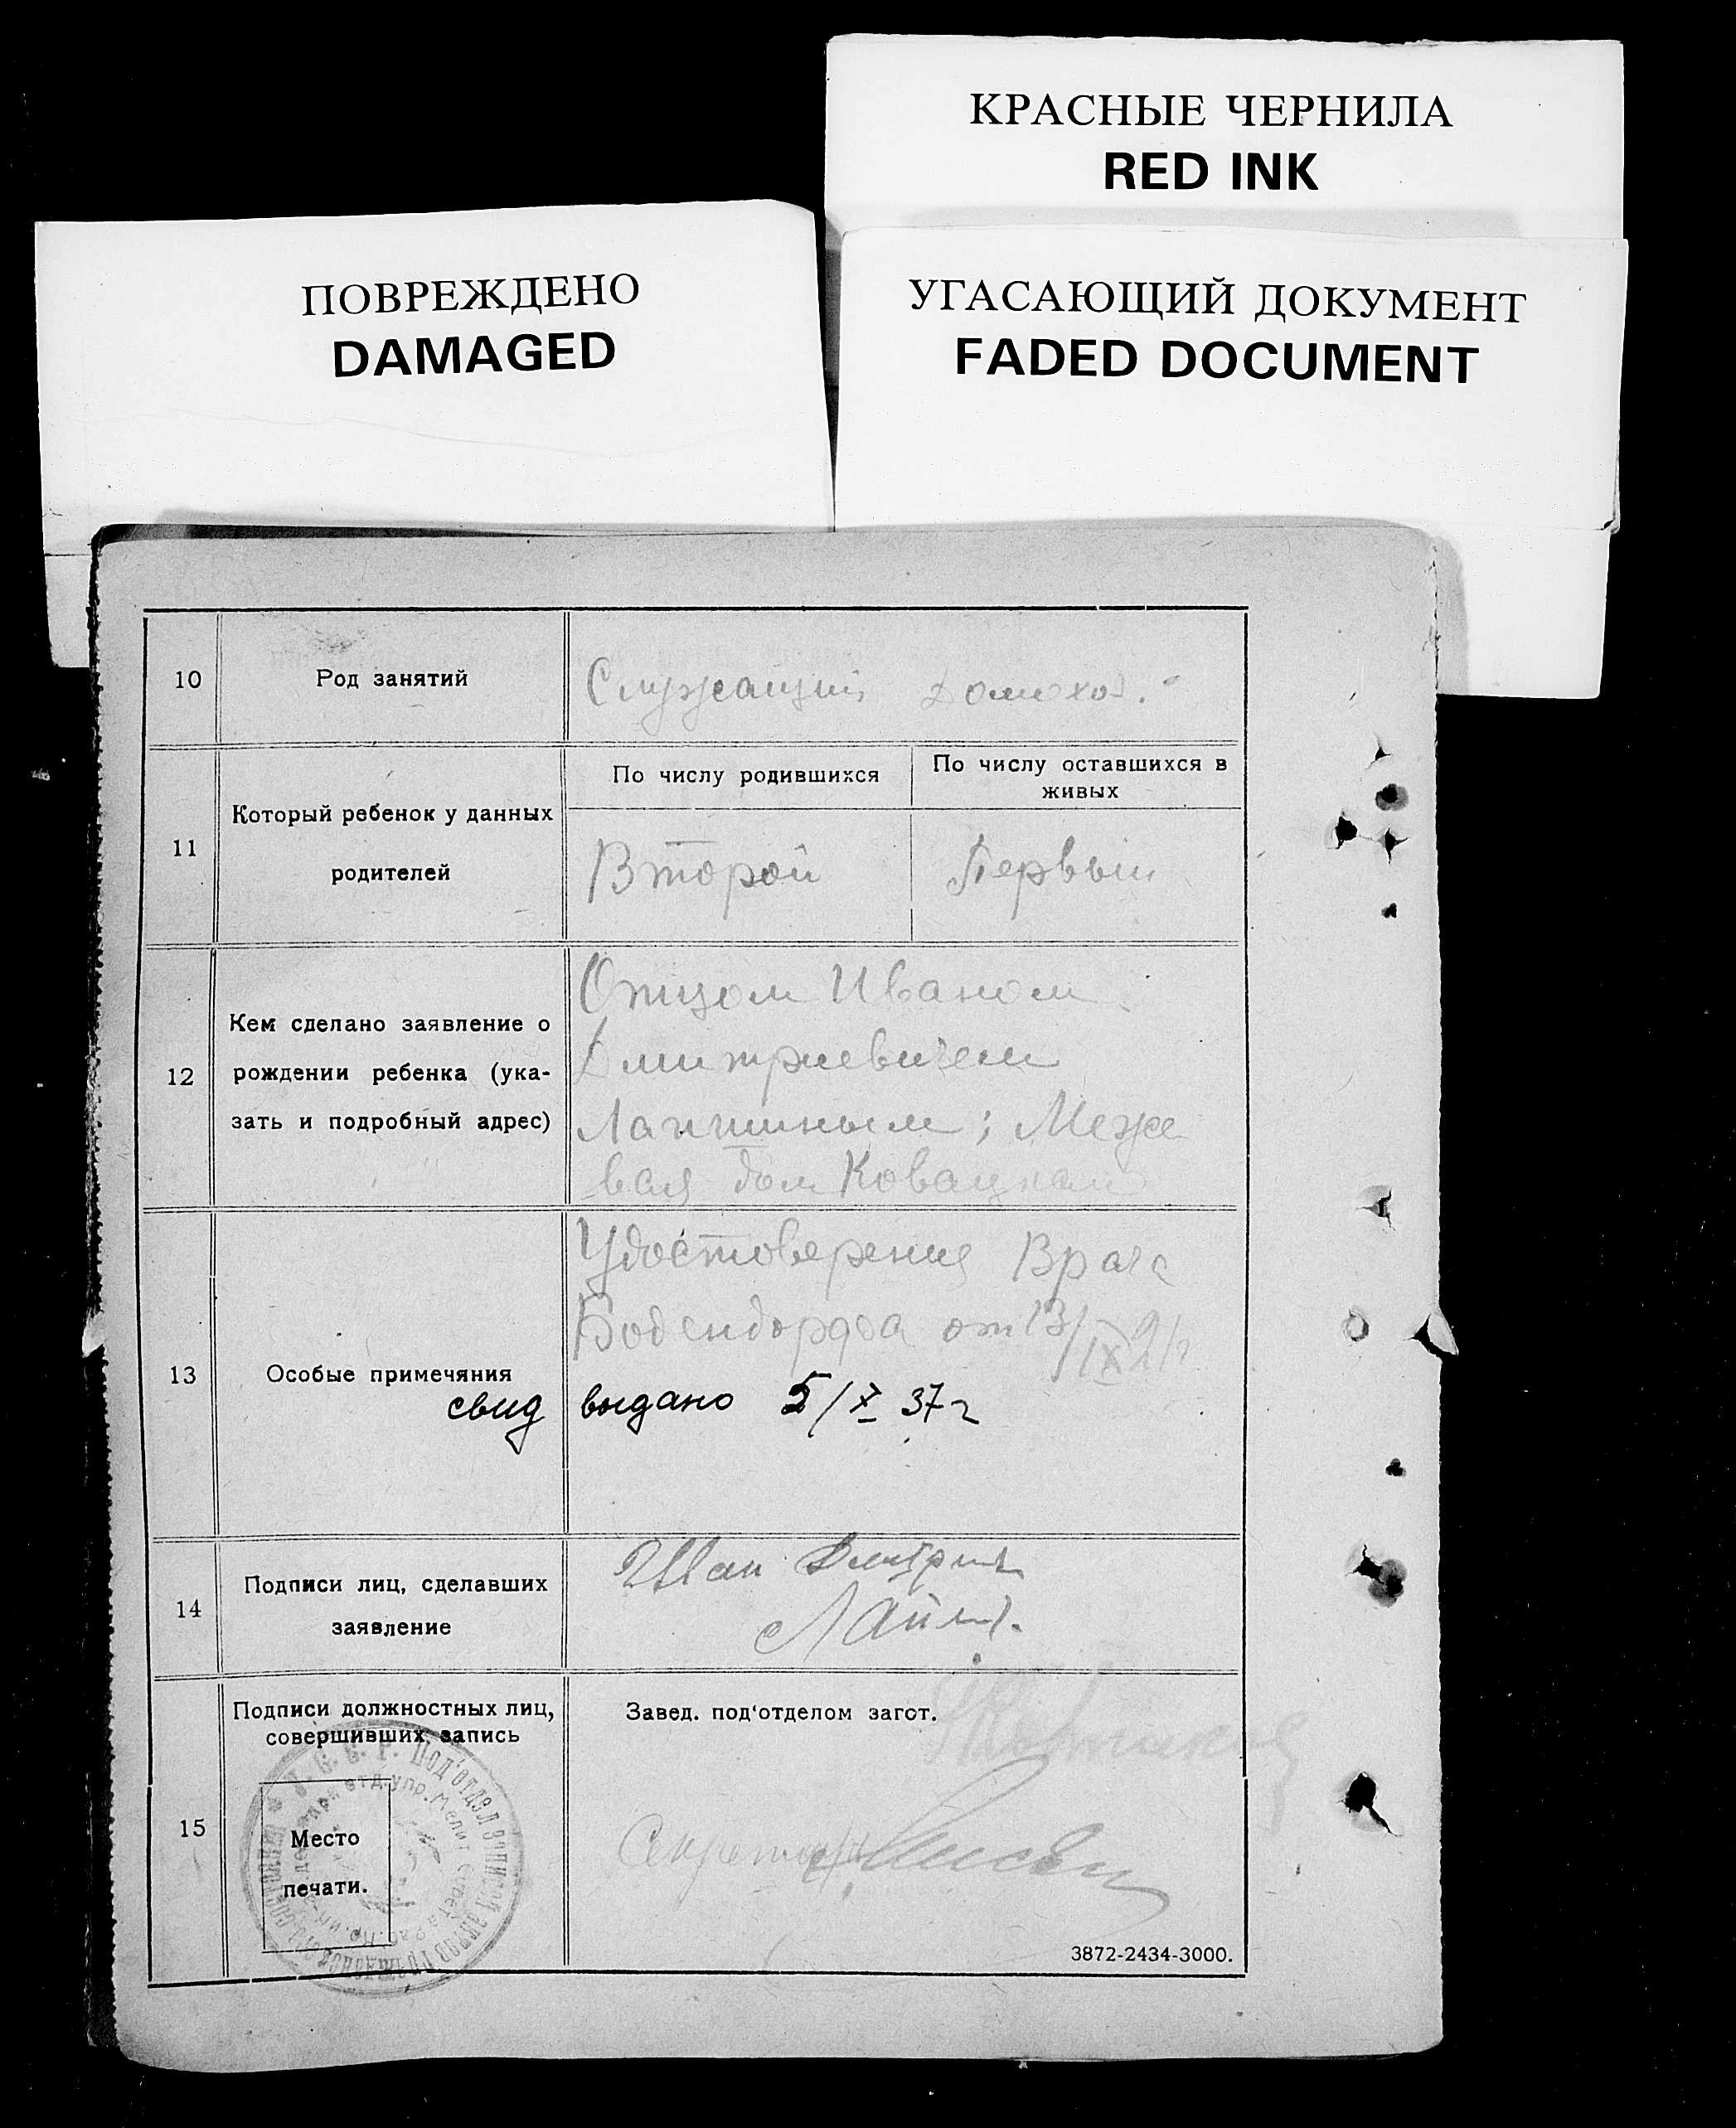 КРАСНЫЕ ЧЕРНИЛА
RED INK
ПОВРЕЖДЕНО
DAMAGED
УГАСАЮЩИЙ ДОКУМЕНТ
FADED DOCUMENT
10
Род занятий
Служащий домохоз.
11
Который ребенок у данных
родителей
По числу родившихся
По числу оставшихся в
живых
Второй
Первый
12
Кем сделано заявление о
рождении ребенка (ука-
зать и подробный адрес)
Отцом Иваном
Дмитриевичем
Лапшиным; Меже
вая дом
13
Особые примечяния
Удостоверения Врача
от 13/IX 21г
свид выдано 5/X 37 г
14
Подписи лиц, сделавших
заявление
Иван
15
Подписи должностных лиц,
совершивших запись
Место
печати.
Завед. под‘отделом загст.
Секретарь
3872-2434-3000.